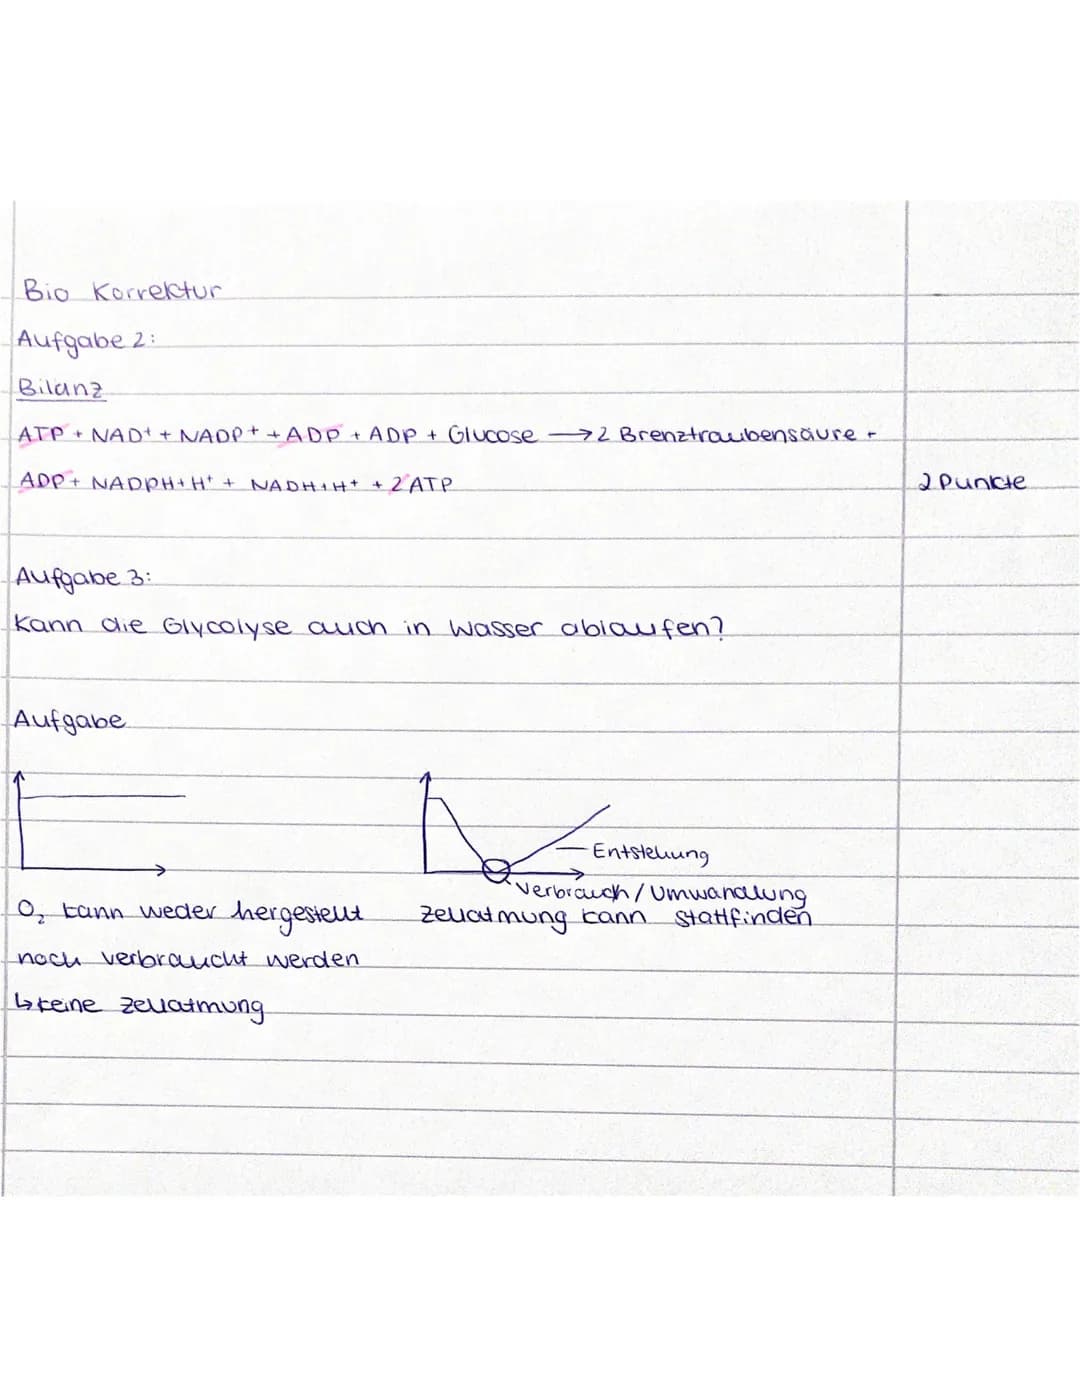 Bio Korrektur
Aufgabe 2:
Bilanz
ATP + NAD⁺ + NADP⁺ + ADP + ADP + Glucose → 2 Brenztraubensäure +
ADP + NADPH+H⁺ + NADH+H⁺ + 2 ATP
2 Punkte
Aufgabe 3:
Kann die Glycolyse auch in Wasser ablaufen?
Aufgabe
Entstehung
Verbrauch / Umwandlung
O₂ kann weder hergestellt
noch verbraucht werden
↳ keine Zellatmung
Zellatmung kann stattfinden